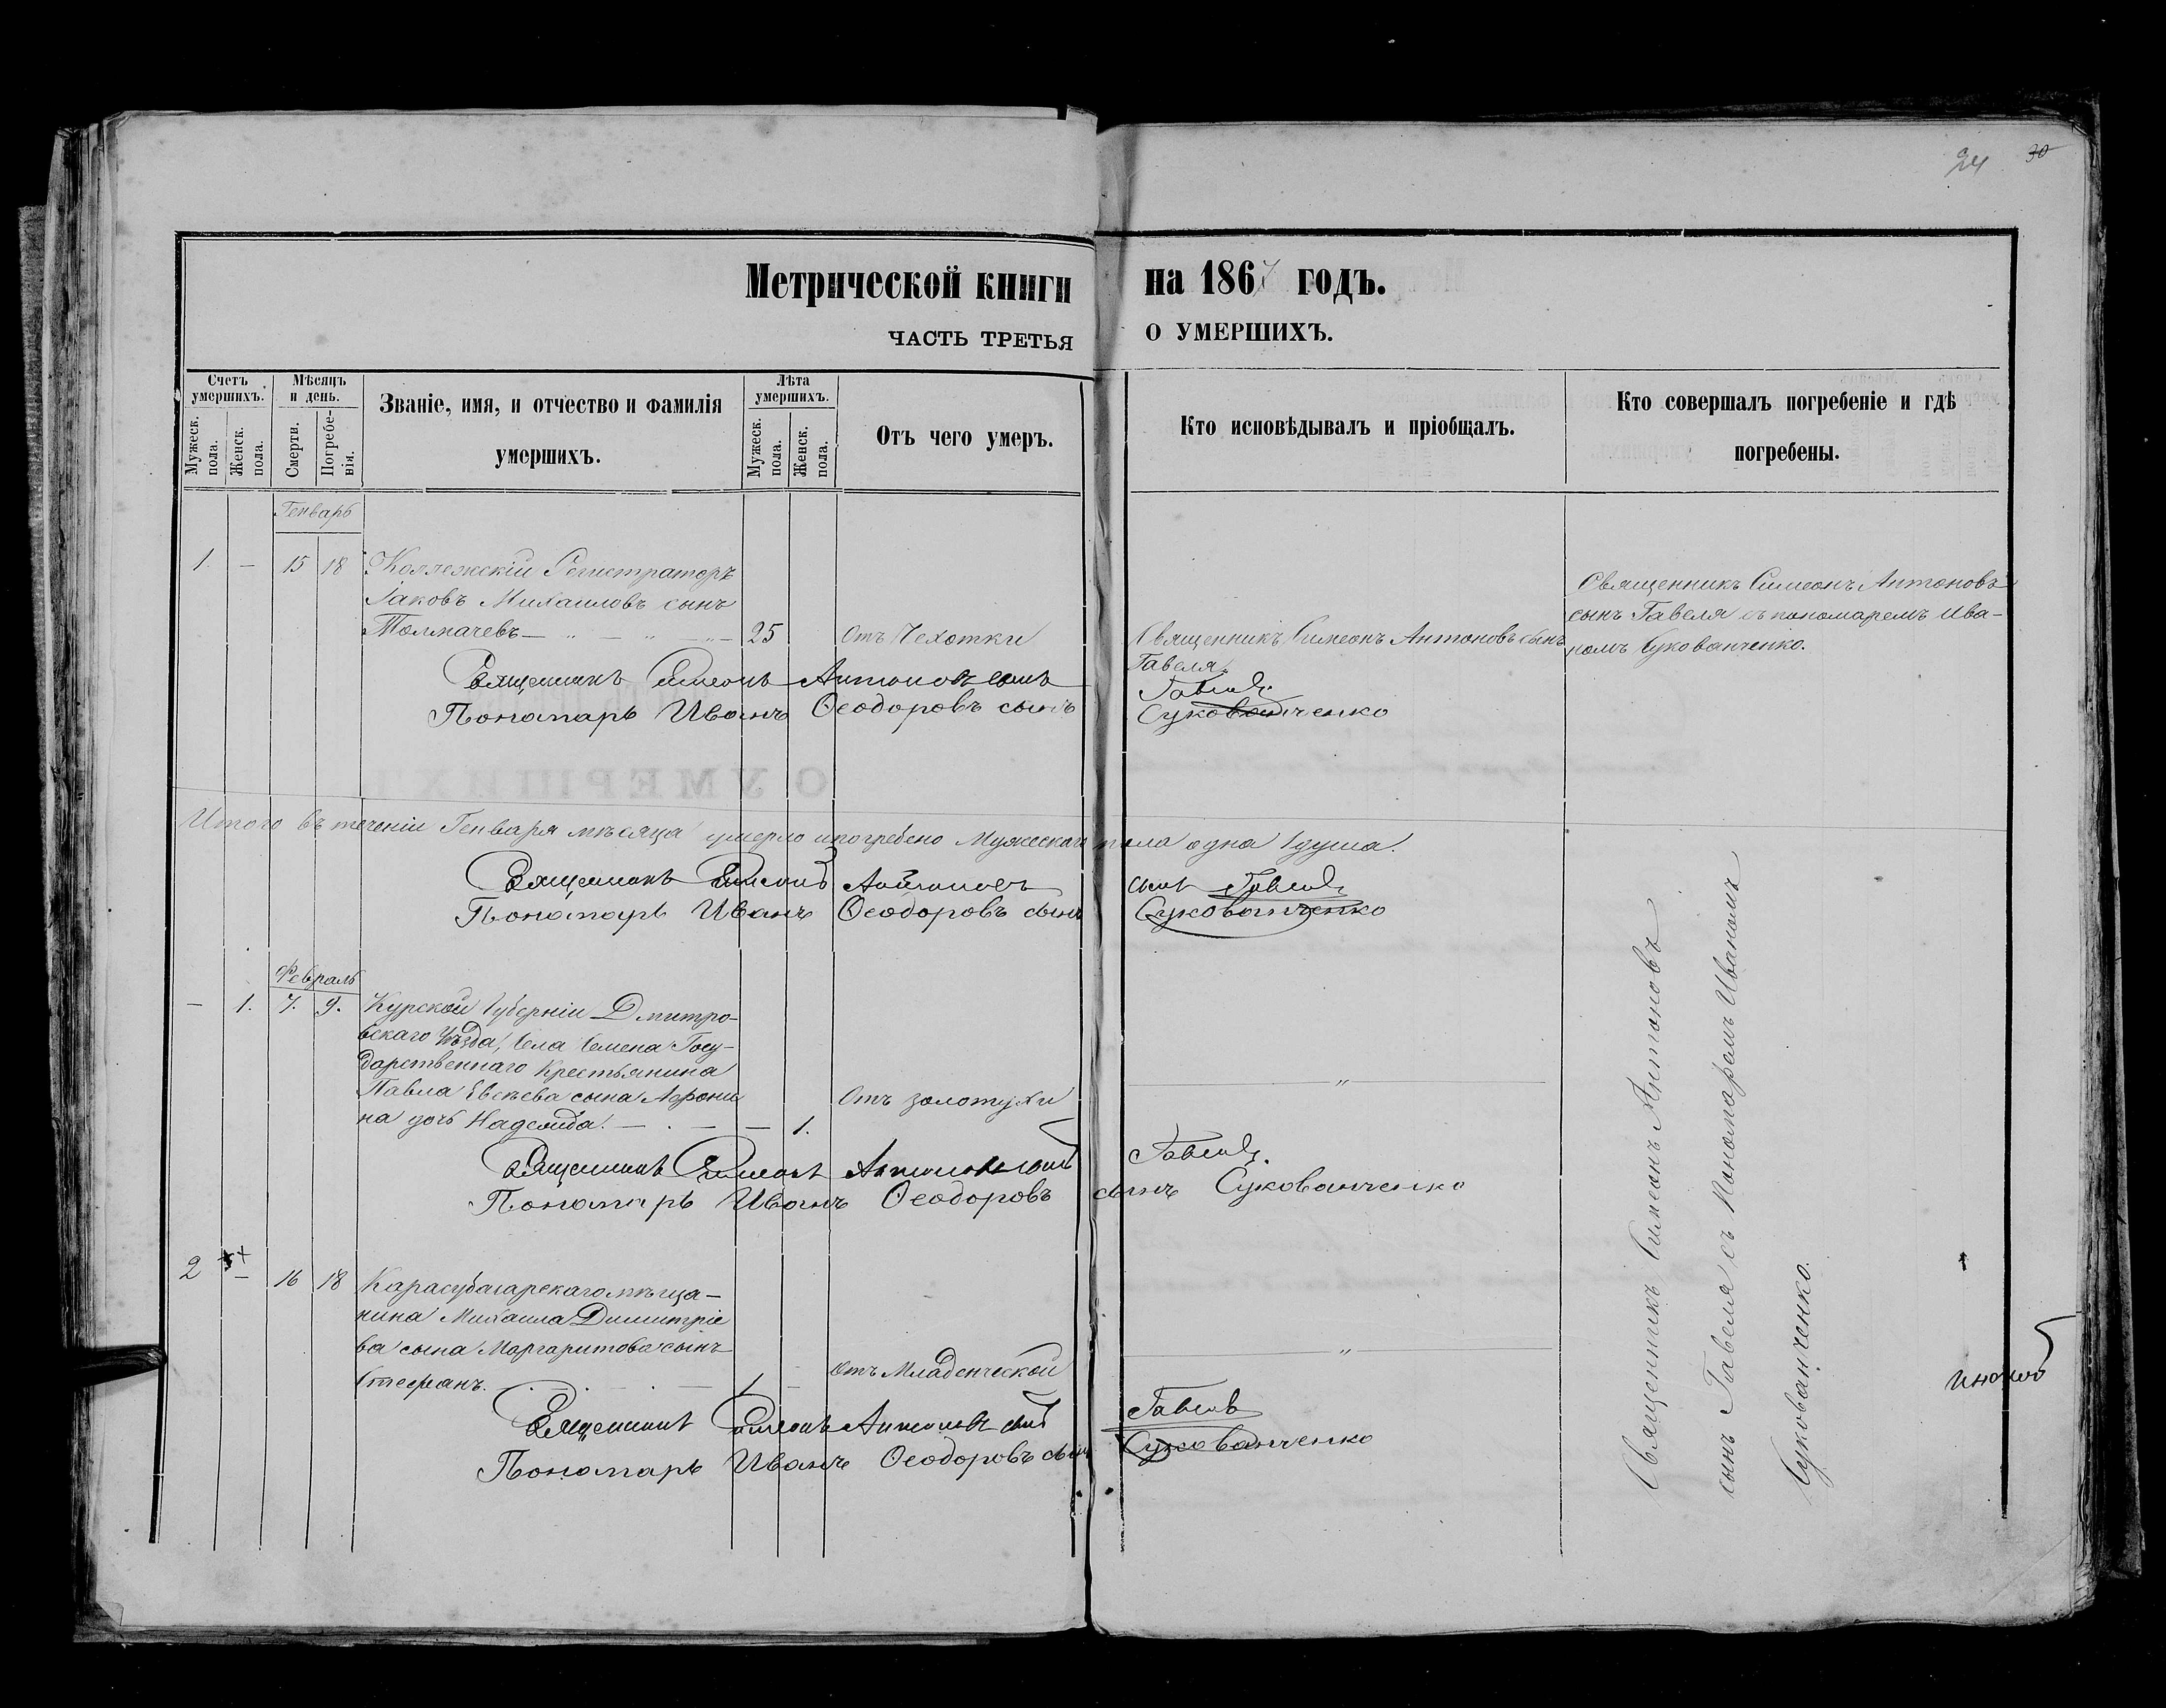 24 30
Метрической книги на 1867 годъ.
ЧАСТЬ ТРЕТЬЯ О УМЕРШИХЪ.
Счетъ умершихъ.
Мужеск. пола.
Женск. пола.
Мѣсяцъ и день.
Смерти.
Погребе-нія.
Званіе, имя, и отчество и фамилія
умершихъ.
Лѣта умершихъ.
Мужеск. пола.
Женск. пола.
Отъ чего умеръ.
Кто исповѣдывалъ и пріобщалъ.
Кто совершалъ погребеніе и гдѣ
погребены.
Генварь
1. — 15 18 Коллежскій Регистраторъ
Іаковъ Михаиловъ сынъ
Толмачевъ — 25 Отъ Чехотки
Священникъ Симеонъ Антоновъ сынъ
Гавеля.
Священникъ Симеонъ Антоновъ
сынъ Гавеля съ пономаремъ Ива-
номъ Сукованченко.
Священникъ Симеонъ Антоновъ сынъ Гавеля
Пономарь Иванъ Ѳеодоровъ сынъ Суковатченко
Итого въ теченіи Генваря мѣсяца умерло и погребено Мужескаго пола одна 1 душа.
Священникъ Симеонъ Антоновъ сынъ Гавеля
Пономарь Иванъ Ѳеодоровъ сынъ Суковатченко
Февраль
— 1. 7. 9. Курской Губерніи Дмитро-
вскаго Уѣзда, Села Семена Госу-
дарственнаго Крестьянина
Павла сына Афони
на дочь Надежда. — 1. Отъ золотухи — „ —
Священникъ Симеонъ Антоновъ сынъ Гавеля.
Пономарь Иванъ Ѳеодоровъ сынъ Сукованченко
2 — 16 18 Карасубазарскаго мѣща-
нина Михаила Димитріе
ва сына Маргаритова сынъ
Стефанъ. — 1 — Отъ Младенческой — „ —
Священникъ Симеонъ Антоновъ сынъ Гавеля
Пономарь Иванъ Ѳеодоровъ сынъ Суковатченко
Священникъ Симеонъ Антоновъ
сынъ Гавеля съ Пономаремъ Иваномъ
Суковатченко.